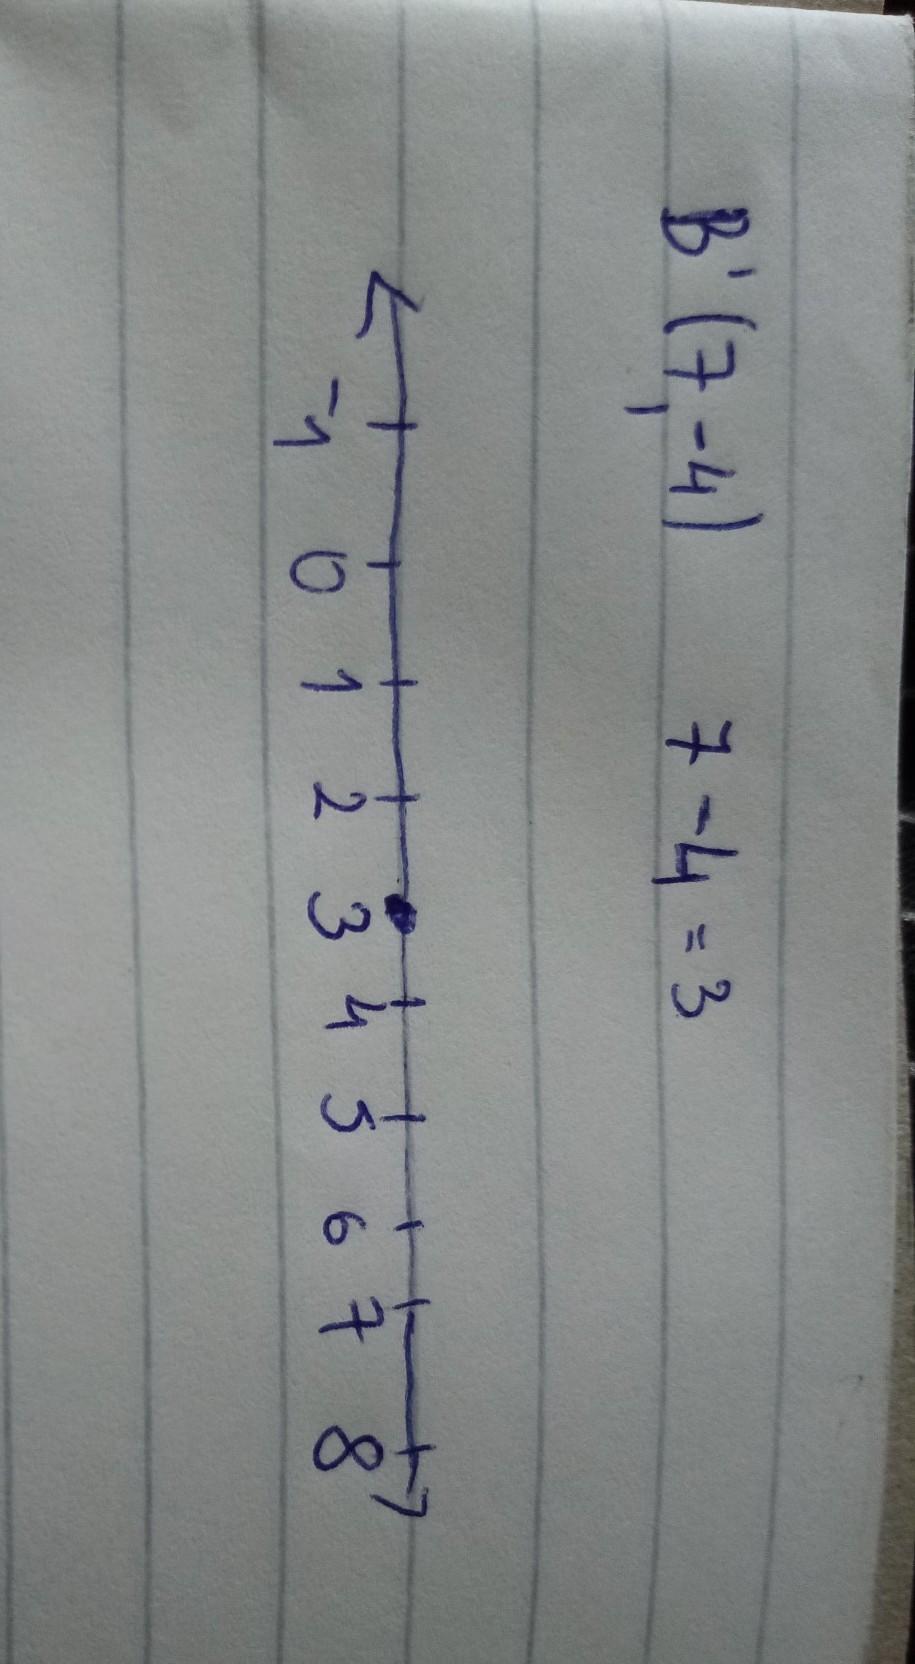 B'(7,-4) 7-4=3
-1 0 1 2 3 4 5 6 7 8